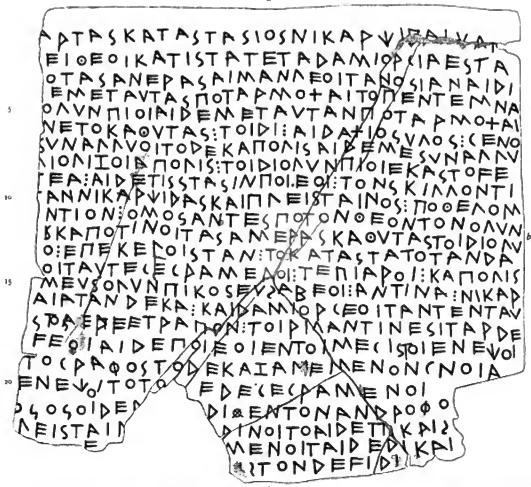 ΑΡΤΑΣΚΑΤΑΣΤΑΣΙΟΣΝΙΚΑΡΨΙΔΑΙ
ΕΙΘΕΟΙΚΑΤΙΣΤΑΤΕΤΑΔΑΜΙΟΡΓΙΑΕΣΤΑ
ΟΤΑΣΑΝΕΡΑΣΑΙΜΑΝΛΕΟΙΤΑΝΟΣΙΑΝΑΙΔΙ
ΕΜΕΤΑΥΤΑΣΠΟΤΑΡΜΟ+ΑΙΤΟΠΕΝΤΕΜΝΑ
5 ΟΛΥΝΠΙΟΙΑΙΔΕΜΕΤΑΥΤΑΝΠΟΤΑΡΜΟ+ΑΙ
ΝΕΤΟΚΑΘΥΤΑΣ:ΤΟΙΔΙ⁝ΑΙΔΑΤΙΟΣΥΛΟΣ:ΓΕΝΟ
ΣΥΝΑΛΛΥΟΙΤΟΔΕΚΑΠΟΛΙΣΑΙΔΕΜΕΣΥΝΑΛΛΥ
ΙΟΛΙΞΟΙΑΠΟΛΙΣ:ΤΟΙΔΙΟΛΥΝΠΙΟΙΕΚΑΣΤΟϜΕ
ΤΕΑ:ΑΙΔΕΤΙΣΣΤΑΣΙΝΠΟΙΕΟΙ:ΤΟΝΣΚΙΛΛΟΝΤΙ
10 ΑΝΝΙΚΑΡΨΙΔΑΣΚΑΙΠΛΕΙΣΤΑΙΝΟΣ:ΠΟΘΕΛΟΜ
ΝΤΙΟΝ:ΟΜΟΣΑΝΤΕΣΠΟΤΟΝΘΕΟΝΤΟΝΟΛΥΝ
ΒΚΑΠΟΤΙΝΟΙΤΑΣΑΜΕΡΑΣΚΑΘΥΤΑΣΤΟΙΔΙΟΝ
Ο:ΕΠΕΚΕΓΟΙΣΤΑΝ:ΤΟΚΑΤΑΣΤΑΤΟΤΑΝΔΑ
ΟΙΤΑΥΤΕΓΕΓΡΑΜΕΝΟΙ:ΤΕΠΙΑΡΟΙ:ΚΑΠΟΛΙΣ
15 ΜΕΥΣΟΛΥΝΠΙΚΟΣΕΥΣΑΒΕΟΙ:ΑΝΤΙΝΑ:ΝΙΚΑΡ
ΑΙΑΤΑΝΔΕΚΑ:ΚΑΙΔΑΜΙΟΡΓΕΟΙΤΑΝΤΕΝΤΑΥ
ΣΤΟΑΕΡΕΕΤΡΑΠΟΝ:ΤΟΙΔΙΑΝΤΙΝΕΣΙΤΑΡΔΕ
ϜΕΘΙΑΙΔΕΠΟΙΕΟΙΕΝΤΟΙΜΕΓΙΣΤΟΙΕΝΕΨΟΙ
ΤΟΓΡΑΦΟΣΤΟΔΕΚΑΙΞΑΜΕΝΕΝΟΝΓΝΟΙΑ
20 ΕΝΕΨΟΙΤΟΤΟ ΕΔΕΓΕΓΡΑΜΕΝΟΙ
ΟΣΟΣΟΙΔΕΝ ΔΙΘΕΝΤΟΝΑΝΔΡΟΦΟ
ΛΕΙΣΤΑΙΝ ΔΙΝΟΙΤΟΑΙΔΕΤΙΚΑΙΣ
Ε ΜΕΝΟΙΤΑΙΔΕ ΚΑΙ
ΣΤΟΝΔΕϜΙΔΙ